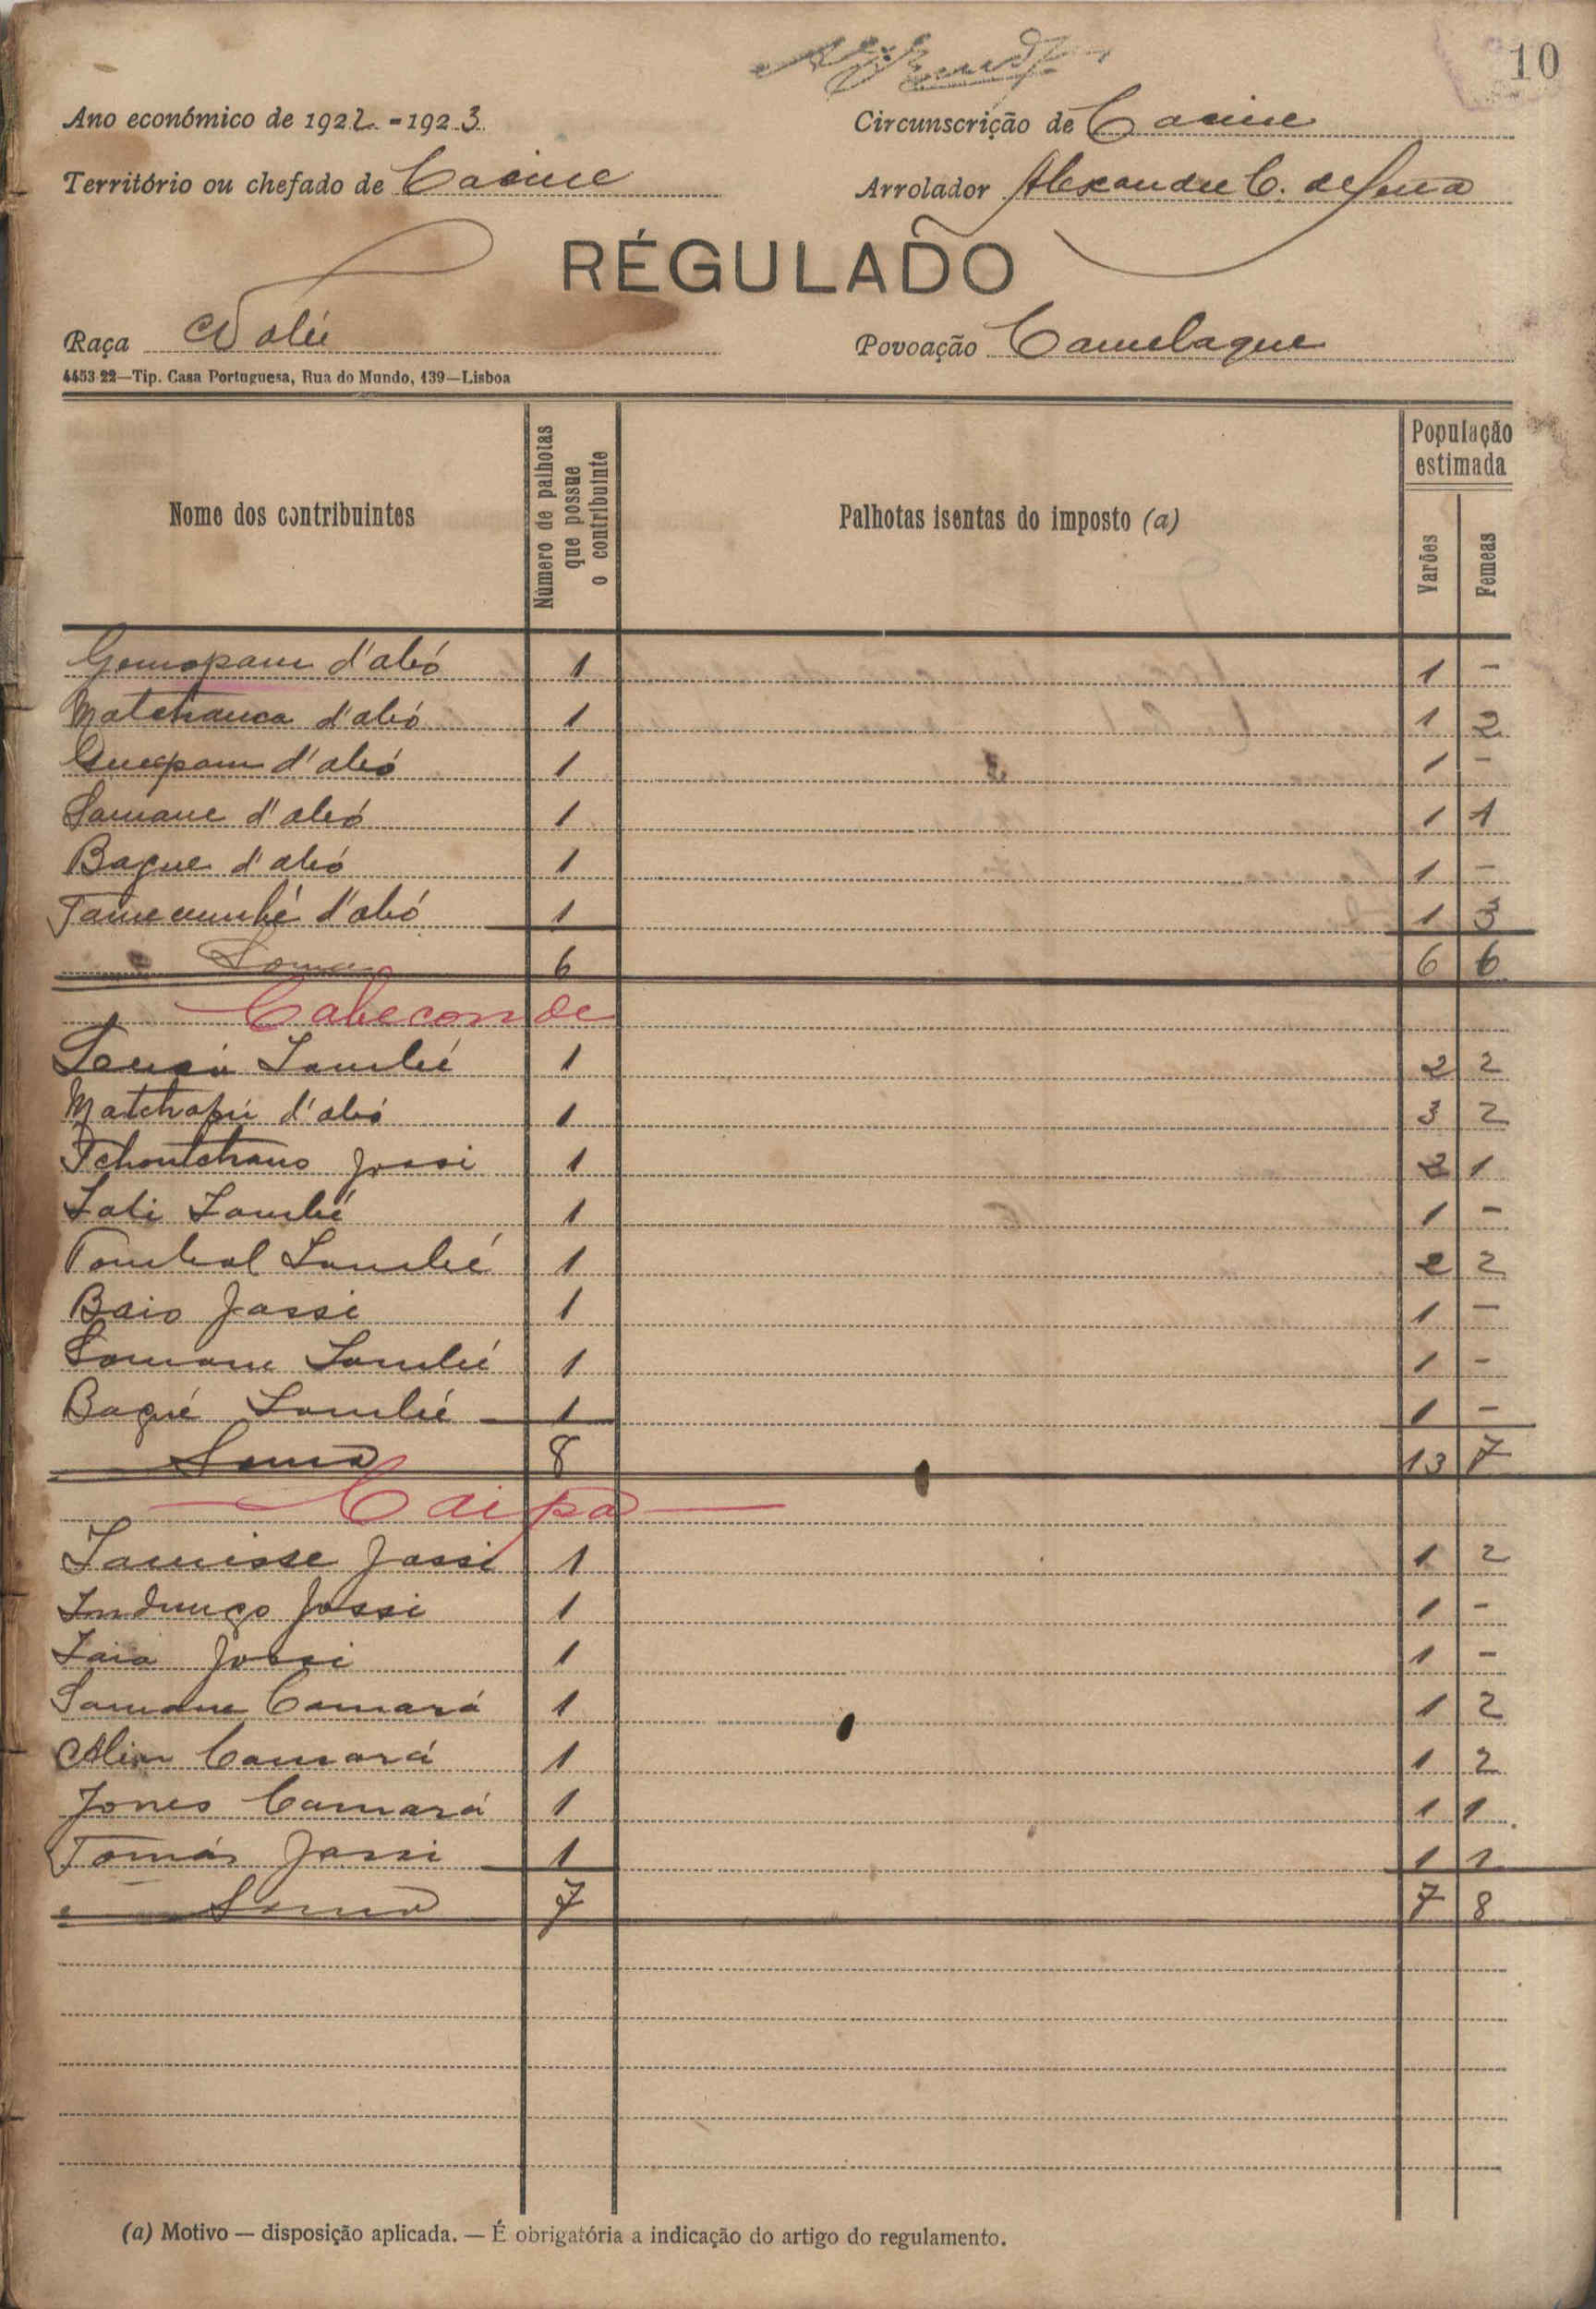 10
Ano económico de 1922-1923 Circunscrição de Cacine
Território ou chefado de Cacine Arrolador Alexandre C. de Sena
RÉGULADO
Raça Nalú Povoação Camelaque
4453-22—Tip. Casa Portuguesa, Rua do Mundo, 139—Lisboa
Nome dos contribuintes Número de palhotas que possue o contribuinte Palhotas isentas do imposto (a) População estimada Varões Femeas
d'abó 1 1 -
Matchauca d'abó 1 1 2
d'abó 1 1 -
Samane d'abó 1 1 1
Baque d'abó 1 1 -
d'abó 1 1 3
Soma 6 6 6
Cabeconde
Sambú 1 2 2
d'abó 1 3 2
Jassi 1 2 1
1 1 -
Tombal 1 2 2
Baio Jassi 1 1 -
Somane 1 1 -
Baqué 1 1 -
Soma 8 13 7
Caipa
Jassi 1 1 2
Jassi 1 1 -
Jassi 1 1 -
Samane Camará 1 1 2
Camará 1 1 2
Jones Camará 1 1 1
Tomás Jassi 1 1 1
Soma 7 7 8
(a) Motivo — disposição aplicada. — É obrigatória a indicação do artigo do regulamento.